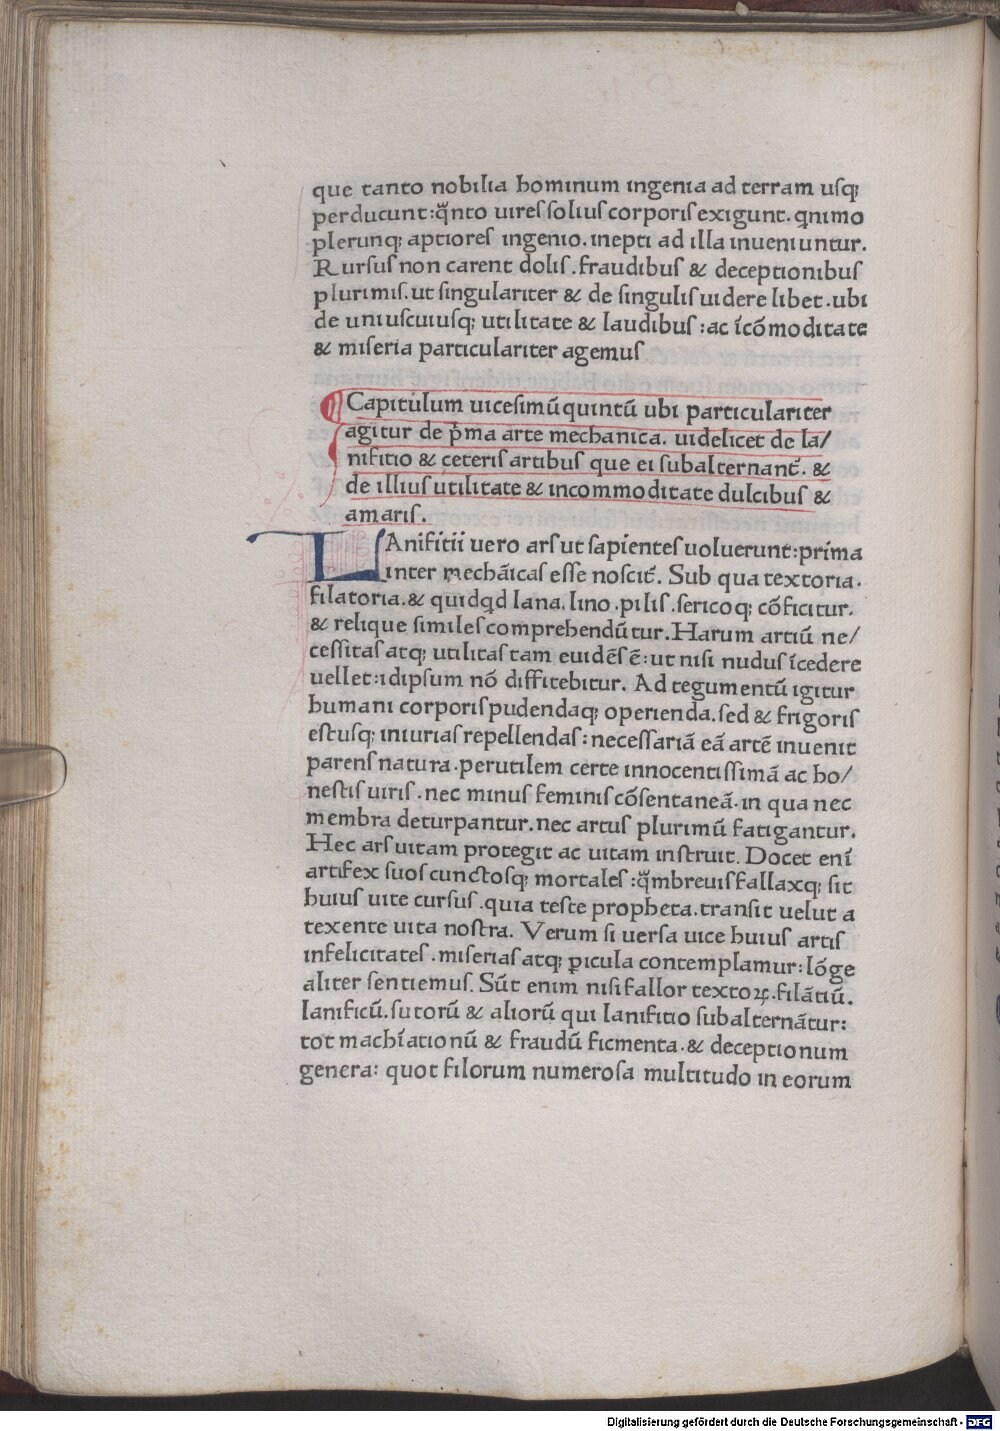 que tanto nobilia hominum ingenia ad terram usq;
perducunt: q̃nto uires solius corporis exigunt. qnimo
plerunq; aptiores ingenio. inepti ad illa inueniuntur.
Rursus non carent dolis. fraudibus & deceptionibus
plurimis. ut singulariter & de singulis uidere libet. ubi
de uniuscuiusq; utilitate & laudibus: ac ĩcõmoditate
& miseria particulariter agemus
Capitulum uicesimũ quintũ ubi particulariter
agitur de p̃ma arte mechanica. uidelicet de la/
nifitio & ceteris artibus que ei subalternant̃. &
de illius utilitate & incommoditate dulcibus &
amaris.
LAnifitii uero ars ut sapientes uoluerunt: prima
inter mechãicas esse noscit̃. Sub qua textoria.
filatoria. & quidqd lana. lino. pilis. sericoq; cõficitur.
& relique similes comprehendũtur. Harum artiũ ne/
cessitas atq; utilitas tam euidẽs ẽ: ut nisi nudus ĩcedere
uellet: idipsum nõ diffitebitur. Ad tegumentũ igitur
humani corporis pudendaq; operienda. sed & frigoris
estusq; iniurias repellendas: necessariã eã artẽ inuenit
parens natura. perutilem certe innocentissimã ac ho/
nestis uiris. nec minus feminis cõsentaneã. in qua nec
membra deturpantur. nec artus plurimũ fatigantur.
Hec ars uitam protegit ac uitam instruit. Docet enĩ
artifex suos cunctosq; mortales: q̃mbreuis fallaxq; sit
huius uite cursus. quia teste propheta. transit uelut a
texente uita nostra. Verum si uersa uice huius artis
infelicitates. miserias atq; ꝑicula contemplamur: lõge
aliter sentiemus. Sũt enim nisi fallor textoꝝ. filãtiũ.
lanificũ. sutorũ & aliorũ qui lanifitio subalternãtur:
tot machĩationũ & fraudũ ficmenta. & deceptionum
genera: quot filorum numerosa multitudo in eorum
Digitalisierung gefördert durch die Deutsche Forschungsgemeinschaft - DFG